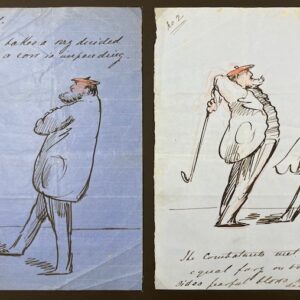 takes a very decided
a cow is impending.
No 2
The Combatants met
equal fury on b
sides fearful blows